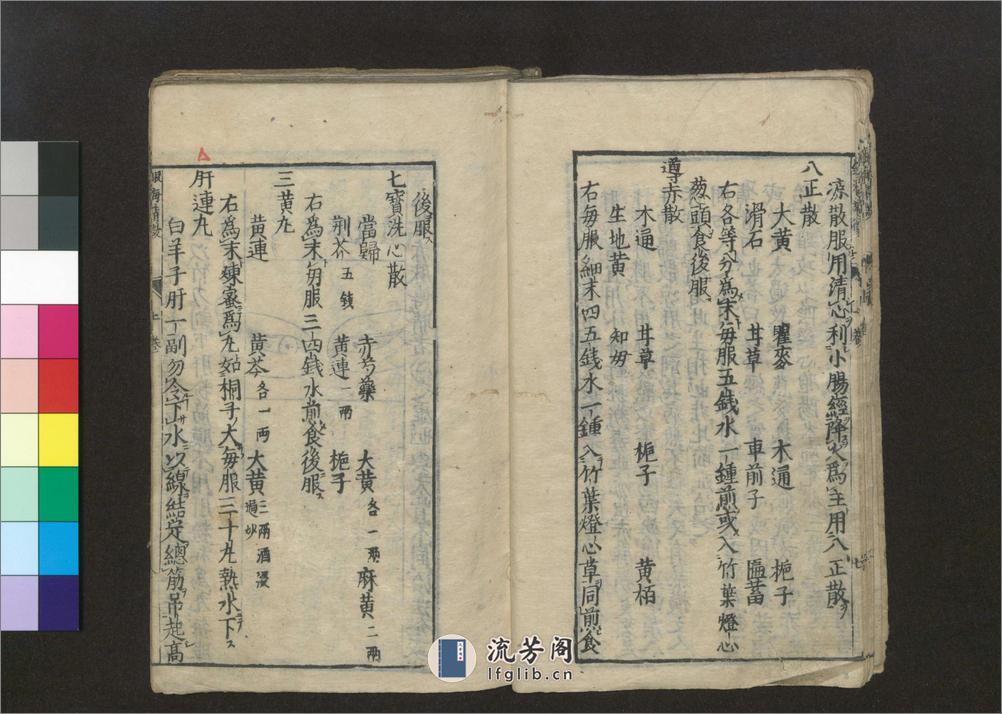 涼散服用清心利小腸經降火為主用八正散
八正散
大黃 瞿麥 木通 梔子
滑石 甘草 車前子 匾蓄
右各等分為末每服五錢水一鍾煎或入竹葉燈心
葱頭食後服
導赤散
木通 甘草 梔子 黄栢
生地黄 知母
右每服細末四五錢水一鍾入竹葉燈心草同煎食
後服
七寶洗心散
當歸 赤芍藥 大黄各一兩 麻黄二兩
荆芥五錢 黄連一兩 梔子
右為末每服三四錢水煎食後服
三黄丸
黄連 黄芩各一両 大黄三兩酒浸過炒
右為末煉蜜為丸如桐子大每服三十丸熱水下
肝連丸
白羊子肝一副勿令下水以線結定總筋吊起高
流芳阁
lfglib.cn